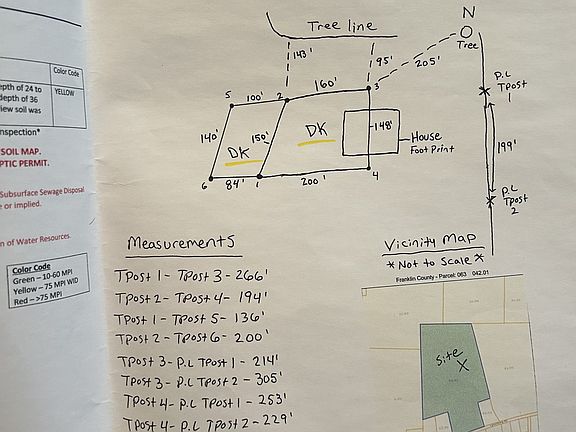 Color Code
epth of 24 to
depth of 36
iew soil was
YELLOW
nspection*
SOIL MAP.
PTIC PERMIT.
Subsurface Sewage Disposal
e or implied.
n of Water Resources.
Color Code
Green – 10-60 MPI
Yellow – 75 MPI WID
Red – >75 MPI
Tree line
N
Tree
143'
95'
205'
P.L
TPost
1
199'
P.L
TPost
2
5
100'
2
160'
3
140'
150'
148'
DK
DK
House
Foot Print
6
84'
1
200'
4
Measurements
TPost 1 - TPost 3 - 266'
TPost 2 - TPost 4 - 194'
TPost 1 - TPost 5 - 136'
TPost 2 - TPost 6 - 200'
TPost 3 - P.L TPost 1 - 214'
TPost 3 - P.L TPost 2 - 305'
TPost 4 - P.L TPost 1 - 253'
TPost 4 - P.L TPost 2 - 229'
Vicinity Map
* Not to Scale *
Franklin County - Parcel: 063 042.01
Site
X